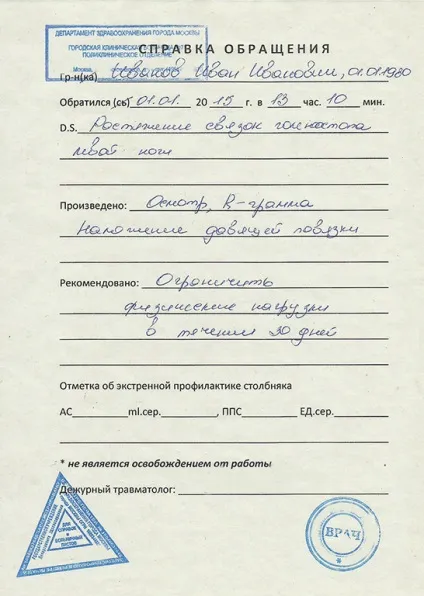 ДЕПАРТАМЕНТ ЗДРАВООХРАНЕНИЯ ГОРОДА МОСКВЫ
ГОРОДСКАЯ КЛИНИЧЕСКАЯ
ПОЛИКЛИНИЧЕСКОЕ ОТДЕЛЕНИЕ
Москва,
СПРАВКА ОБРАЩЕНИЯ
Гр-н(ка) Иванов Иван Иванович, 01.01.1980
Обратился (сь) 01.01. 2015 г. в 13 час. 10 мин.
D.S. Растяжение связок голеностопа
левой ноги
Произведено: Осмотр, R-грамма
Наложение давящей повязки
Рекомендовано: Ограничить
физические нагрузки
в течении 30 дней
Отметка об экстренной профилактике столбняка
АС ml.сер. , ППС ЕД.сер.
* не является освобождением от работы
Дежурный травматолог:
ДЛЯ
СПРАВОК
И
БОЛЬНИЧНЫХ
ЛИСТОВ
ВРАЧ